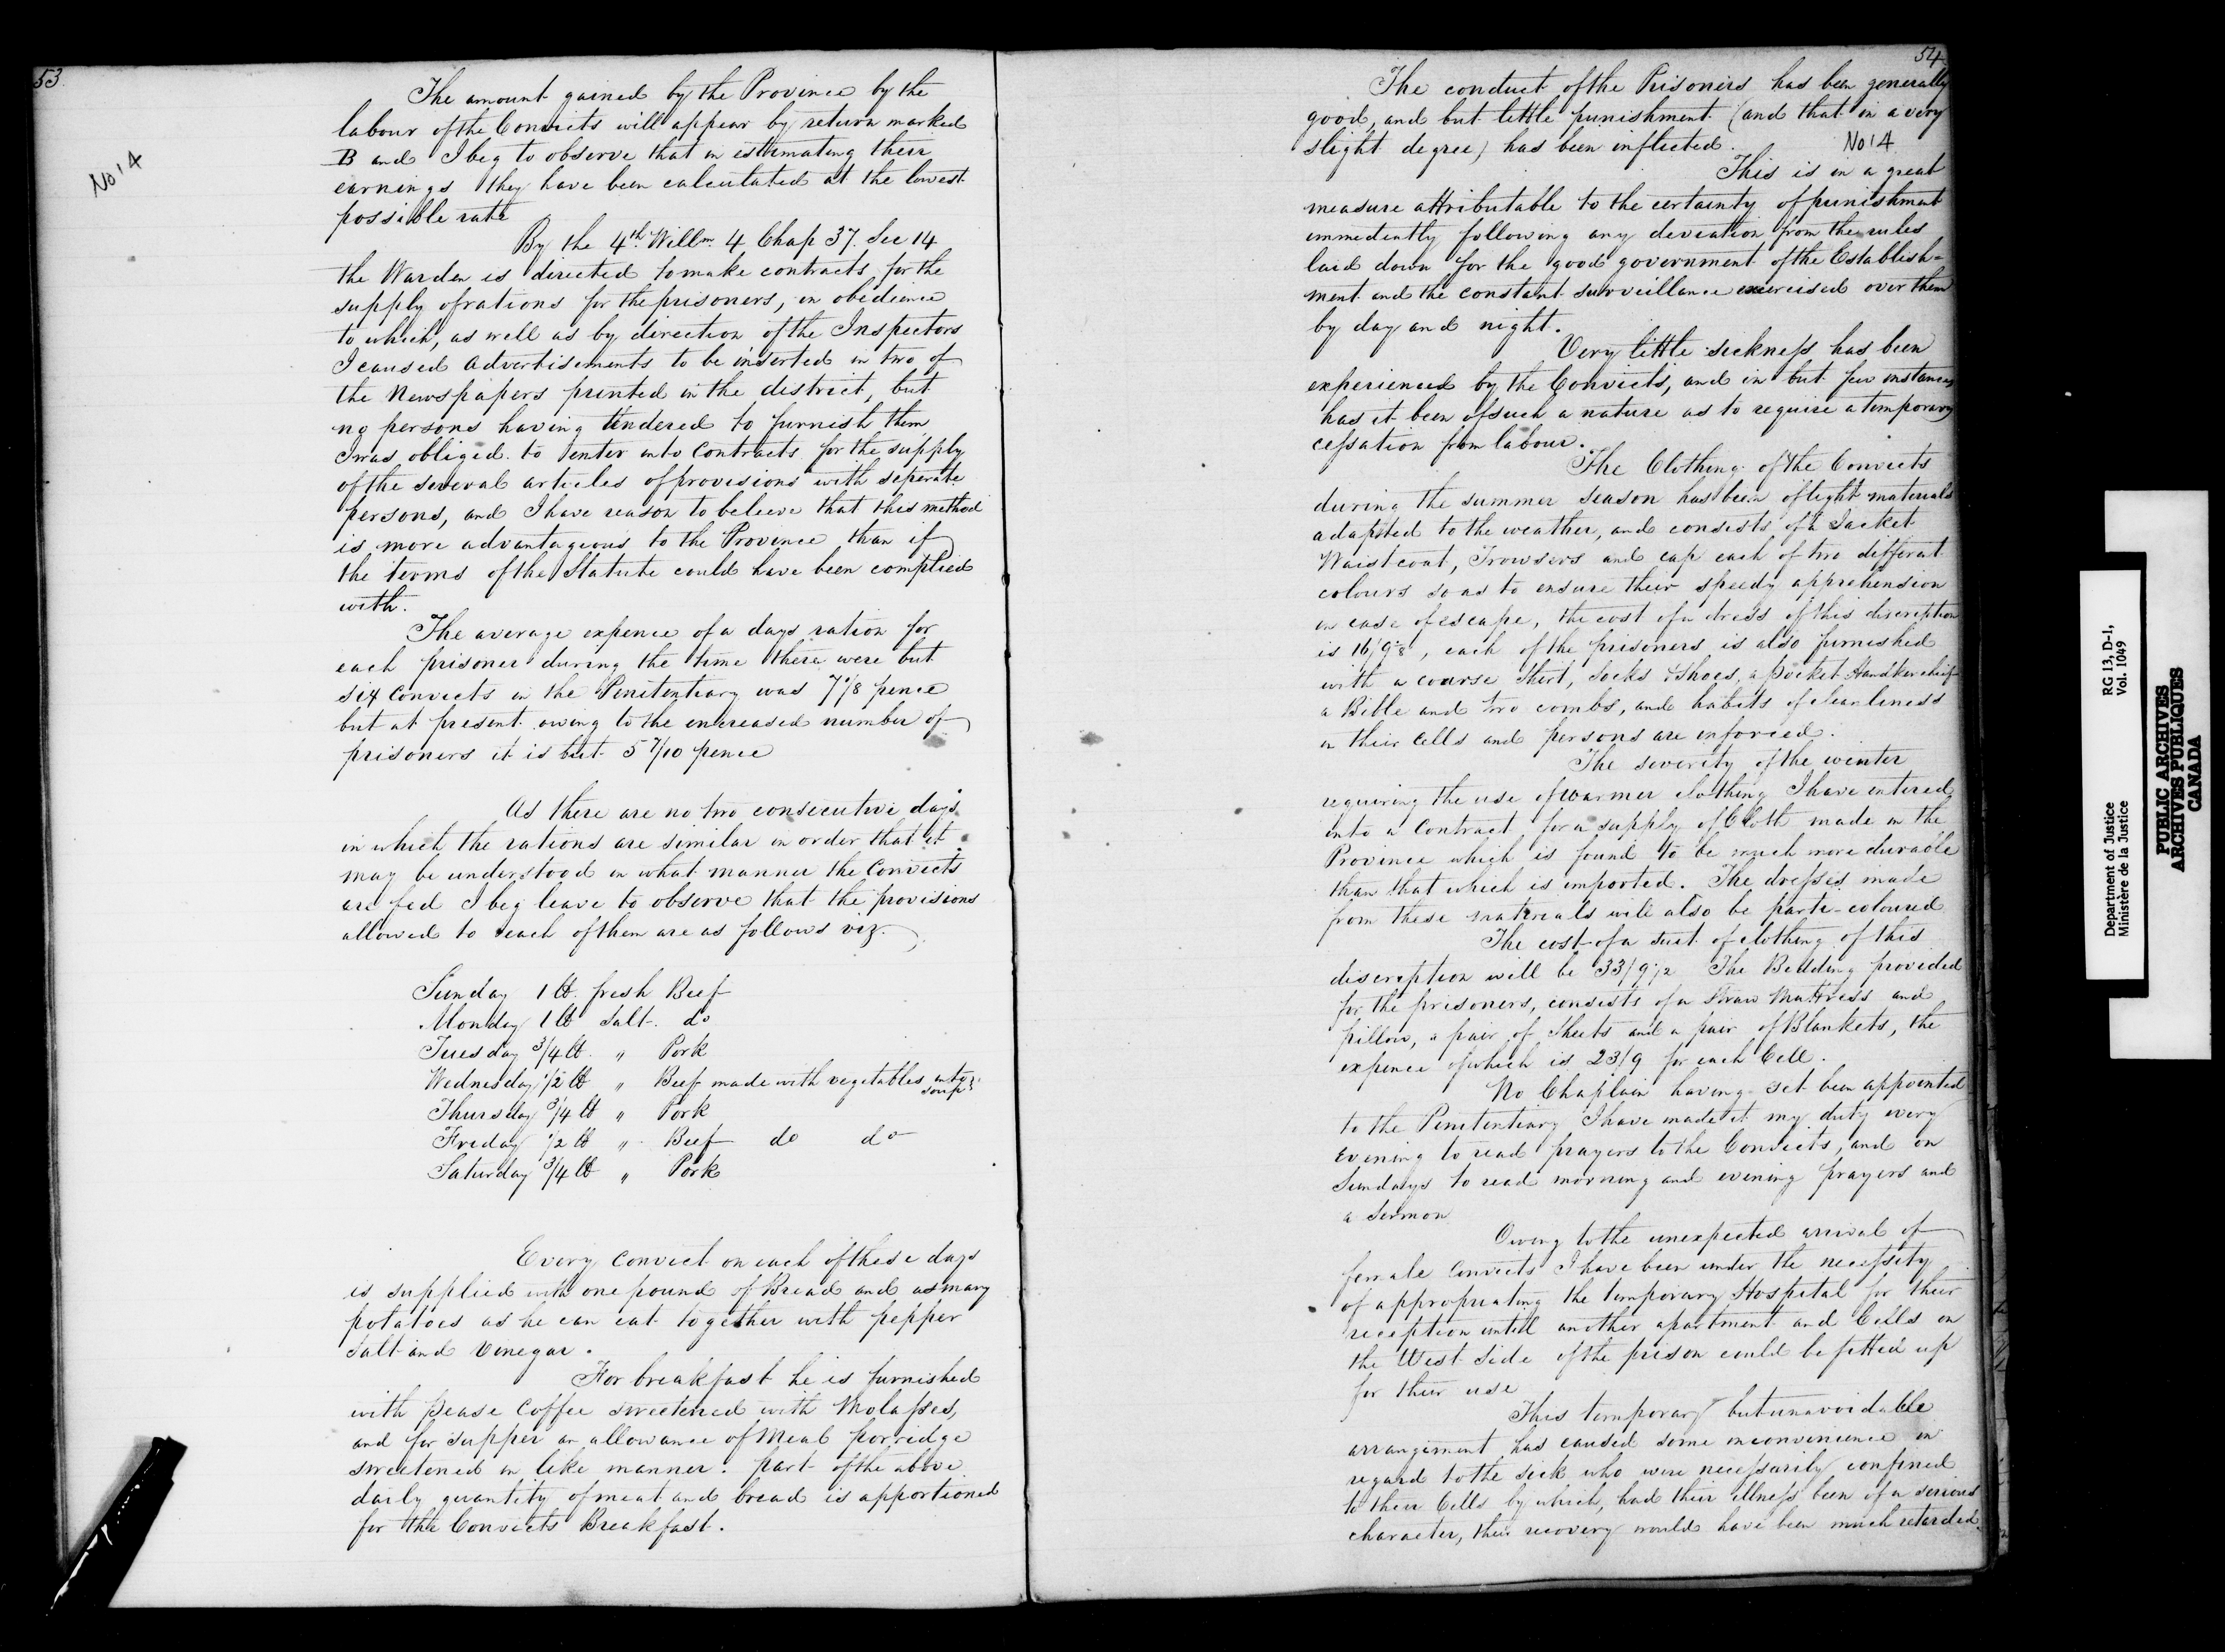 53
No 14
The amount gained by the Province by the
labour of the Convicts will appear by return marked
B and I beg to observe that in estimating their
earnings they have been calculated at the lowest
possible rate
By the 4th Willm 4 Chap 37. Sec 14
the Warden is directed to make contracts for the
supply of rations for the prisoners, in obedience
to which, as well as by direction of the Inspectors
I caused advertisements to be inserted in two of
the Newspapers printed in the district, but
no persons having tendered to furnish them
I was obliged to enter into Contracts for the supply
of the several articles of provisions with seperate
persons, and I have reason to believe that this method
is more advantageous to the Province than if
the terms of the Statute could have been complied
with.
The average expence of a days ration for
each prisoner during the time there were but
six convicts in the Penitentiary was 7 1/8 pence
but at present owing to the encreased number of
prisoners it is but 5 7/10 pence
As there are no two consecutive days
in which the rations are similar in order that it
may be understood in what manner the Convicts
are fed I beg leave to observe that the provisions
allowed to each of them are as follows viz.
Sunday 1 lb. fresh Beef
Monday 1 lb Salt. do
Tuesday 3/4 lb. " Pork
Wednesday 1/2 lb " Beef made with vegetables into
soup
Thursday 3/4 lb " Pork
Friday 1/2 lb " Beef do do
Saturday 3/4 lb " Pork
Every convict on each of these days
is supplied with one pound of Bread and as many
potatoes as he can eat together with pepper
salt and Vinegar.
For breakfast he is furnished
with pease Coffee sweetened with Molasses,
and for supper an allowance of Meal porridge
sweetened in like manner. part of the above
daily quantity of meat and bread is apportioned
for the Convicts Breakfast.
54
The conduct of the Prisoners has been generally
good, and but little punishment (and that in a very
slight degree) has been inflicted.
No 14
This is in a great
measure attributable to the certainty of punishment
immediently following any deviation from the rules
laid down for the good government of the Establish=
ment and the constant surveillance exercised over them
by day and night.
Very little sickness has been
experienced by the Convicts, and in but few instances
has it been of such a nature as to require a temporary
cessation from labour.
The Clothing of the Convicts
during the summer season has been of light materials
adapted to the weather, and consists of a Jacket
Waistcoat, Trowsers and cap each of two different
colours so as to ensure their speedy apprehension
in case of escape, the cost of a dress of this discreption
is 16/9, each of the prisoners is also furnished
with a coarse Shirt, Socks & Shoes, a pocket Handkerchief
a Bible and two combs, and habits of cleanliness
in their Cells and persons are inforced.
The severity of the winter
requiring the use of warmer clothing I have entered
into a Contract for a supply of Cloth made in the
Province which is found to be much more durable
than that which is imported. The dresses made
from these materials will also be parti-coloured
The cost of a suit of clothing of this
discreption will be 33/9 1/2 The Bedding provided
for the prisoners, consists of a Straw Mattress and
pillow, a pair of Sheets and a pair of Blankets, the
expence of which is 23/9 for each Cell.
No Chaplain having yet been appointed
to the Penitentiary I have made it my duty every
evening to read prayers to the Convicts, and on
Sundays to read morning and evening prayers and
a Sermon
Owing to the unexpected arrival of
female Convicts I have been under the necessity
of appropriating the temporary Hospital for their
reception until another apartment and Cells on
the West side of the prison could be fitted up
for their use
This temporary but unavoidable
arrangement has caused some inconvenience in
regard to the sick who were necessarily confined
to their Cells by which, had their illness been of a serious
character, their recovery would have been much retarded.
Department of Justice RG 13, D-1,
Ministère de la Justice Vol. 1049
PUBLIC ARCHIVES
ARCHIVES PUBLIQUES
CANADA